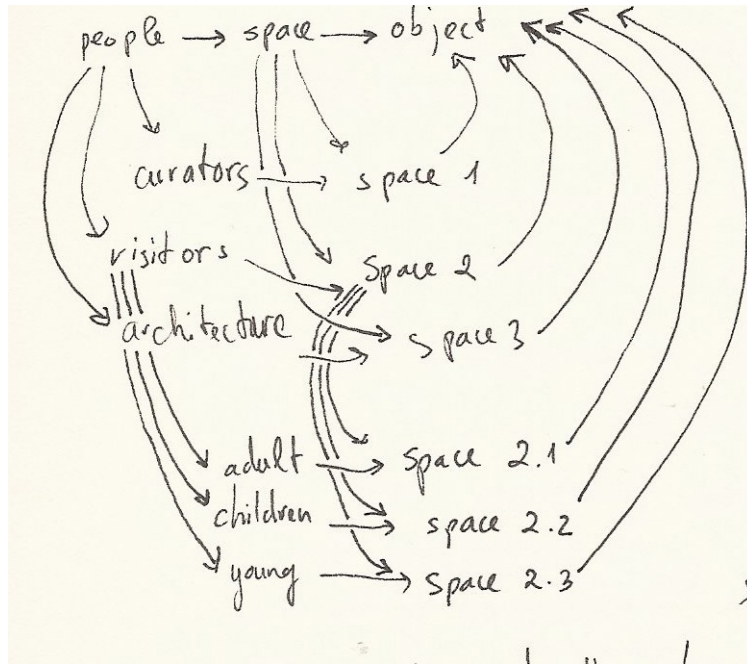 people → space → object
curators → space 1
visitors → space 2
architecture → space 3
adult → space 2.1
children → space 2.2
young → space 2.3